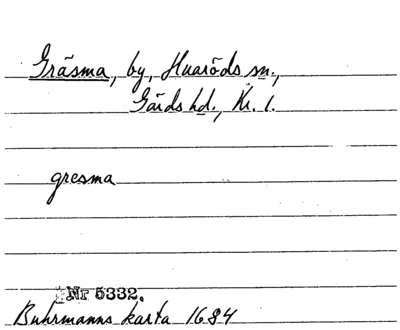 Gräsma, by, Huaröds sn.,
Gärds hd., Kr. l.
gresma
Nr 5332.
Buhrmanns karta 1684